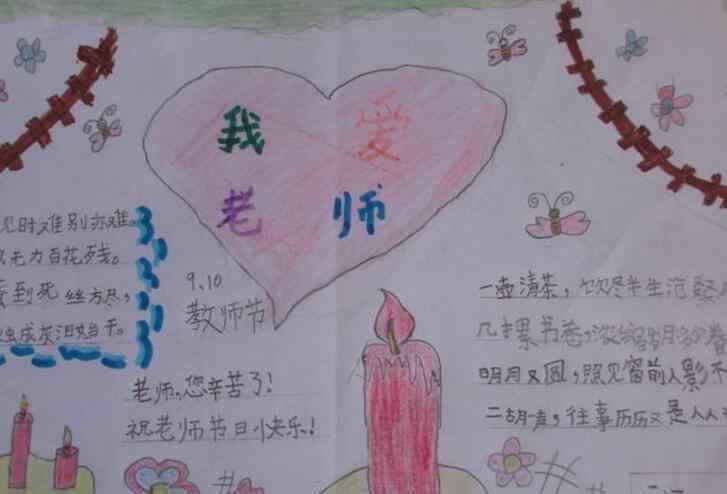 我 爱
老 师
见时难别亦难。
无力百花残。
到死丝方尽,
成灰泪始干。
9.10
教师节
老师,您辛苦了!
祝老师节日快乐!
一壶清茶,饮尽半生
几摞书卷,浓缩
明月又圆,照见窗前人影不
二胡一声,往事历历又是人